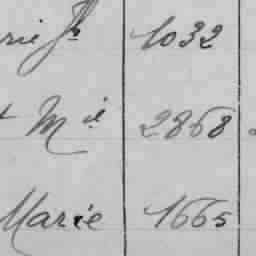 rie Jh 1032
t Mie 2868
Marie 1665